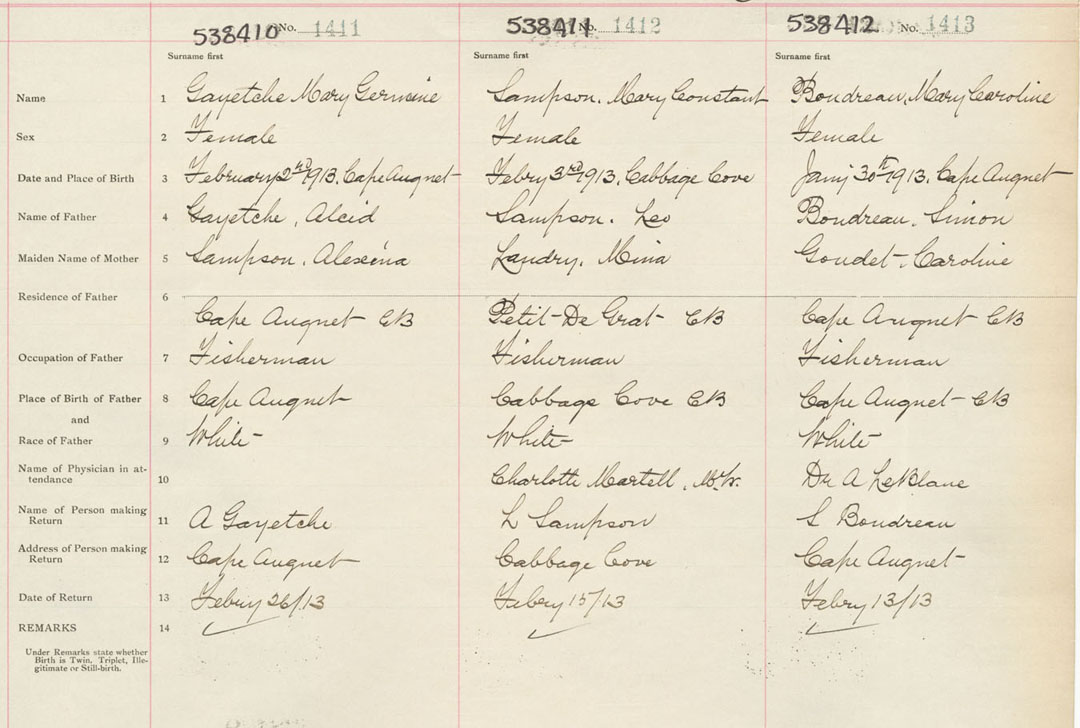 538410 No. 1411 538411 No. 1412 538412 No. 1413
Surname first Surname first Surname first
Name 1 Gayetche Mary Germine Sampson. Mary Constant Boudreau, Mary Caroline
Sex 2 Female Female Female
Date and Place of Birth 3 February 2nd 1913, Cape Auguet Febry 3rd 1913, Cabbage Cove Jany 30th 1913, Cape Auguet
Name of Father 4 Gayetche, Alcid Sampson. Leo Boudreau, Simon
Maiden Name of Mother 5 Sampson. Alexéna Landry, Mina Goudet - Caroline
Residence of Father 6
Cape Auguet CB Petit-De Grat CB Cape Auguet CB
Occupation of Father 7 Fisherman Fisherman Fisherman
Place of Birth of Father 8 Cape Auguet Cabbage Cove CB Cape Auguet - CB
and
Race of Father 9 White White White
Name of Physician in at-
tendance 10 Charlotte Martell, M.W. Dr A LeBlanc
Name of Person making
Return 11 A Gayetche L Sampson S Boudreau
Address of Person making
Return 12 Cape Auguet Cabbage Cove Cape Auguet
Date of Return 13 Febry 26/13 Febry 15/13 Febry 13/13
REMARKS 14
Under Remarks state whether
Birth is Twin. Triplet, Ille-
gitimate or Still-birth.